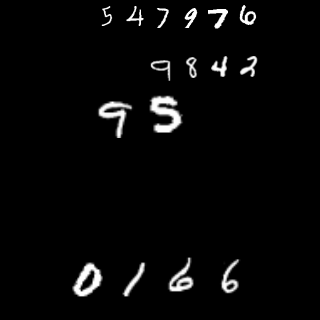 547976
9842
95
0166